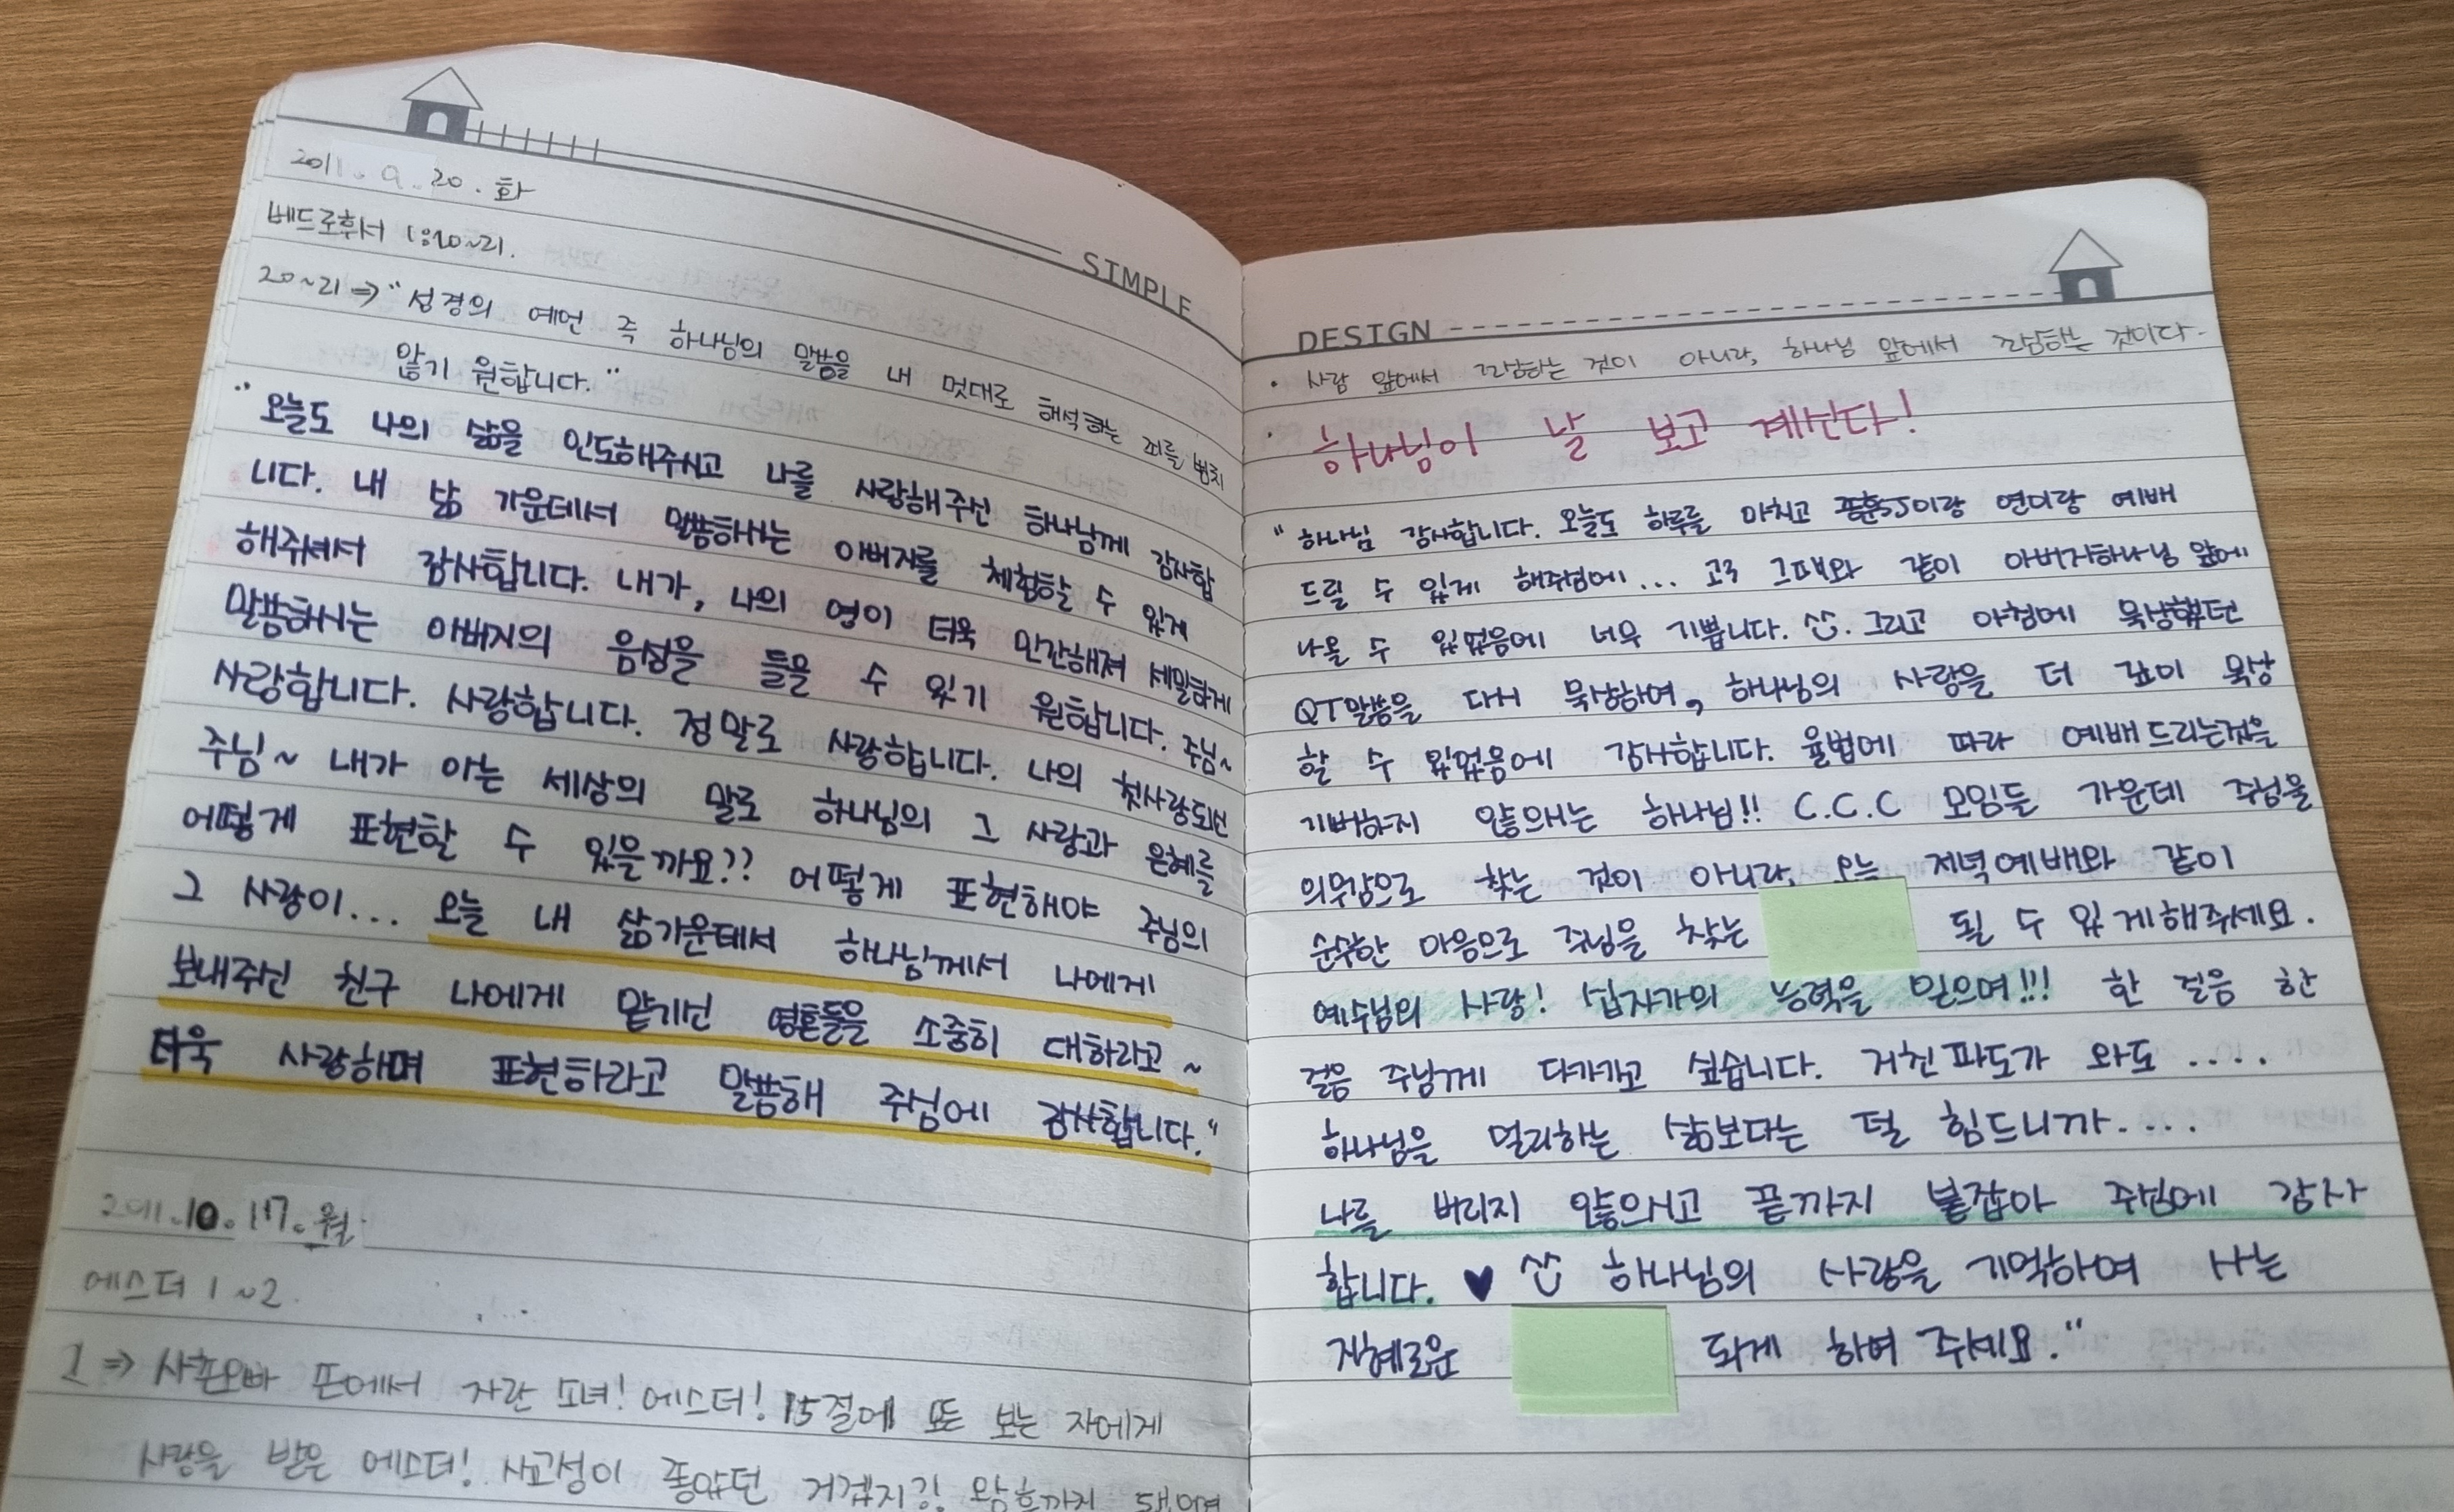 2011. 9. 20. 화
베드로후서 1:20~21.
20~21 ⇒ "성경의 예언 즉 하나님의 말씀을 내 멋대로 해석하는 죄를 범치
않기 원합니다."
"오늘도 나의 삶을 인도해주시고 나를 사랑해주신 하나님께 감사합
니다. 내 삶 가운데서 말씀하시는 아버지를 체험할 수 있게
해주셔서 감사합니다. 내가, 나의 영이 더욱 민감해져 세밀하게
말씀하시는 아버지의 음성을 들을 수 있기 원합니다. 주님~
사랑합니다. 사랑합니다. 정말로 사랑합니다. 나의 첫사랑되신
주님~ 내가 아는 세상의 말로 하나님의 그 사랑과 은혜를
어떻게 표현할 수 있을까요?? 어떻게 표현해야 주님의
그 사랑이... 오늘 내 삶가운데서 하나님께서 나에게
보내주신 친구 나에게 맡기신 영혼들을 소중히 대하라고~
더욱 사랑하며 표현하라고 말씀해 주심에 감사합니다."
2011.10.17. 월
에스더 1~2.
2 ⇒ 사촌오빠 손에서 자란 소녀! 에스더! 15절에 모든 보는 자에게
사랑을 받은 에스더! 사교성이 좋았던 왕후까지
SIMPLE
DESIGN
· 사람 앞에서 하는 것이 아니라, 하나님 앞에서 하는 것이다.
· 하나님이 날 보고 계신다!
"하나님 감사합니다. 오늘도 하루를 마치고 연디랑 예배
드릴 수 있게 해주심에... 고3 그때와 같이 아버지하나님 앞에
나올 수 있었음에 너무 기쁩니다. 그리고 아침에 묵상했던
QT말씀을 다시 묵상하며, 하나님의 사랑을 더 깊이 묵상
할 수 있었음에 감사합니다. 율법에 따라 예배드리는것을
기뻐하지 않으시는 하나님!! C.C.C 모임들 가운데 주님을
의무감으로 찾는 것이 아니라, 오늘 저녁예배와 같이
순수한 마음으로 주님을 찾는 될 수 있게해주세요.
예수님의 사랑! 십자가의 능력을 믿으며!!! 한 걸음 한
걸음 주님께 다가가고 싶습니다. 거친파도가 와도 .....
하나님을 멀리하는 삶보다는 덜 힘드니까....
나를 버리지 않으시고 끝까지 붙잡아 주심에 감사
합니다. ♥ 하나님의 사랑을 기억하며 사는
지혜로운 되게 하여 주세요."